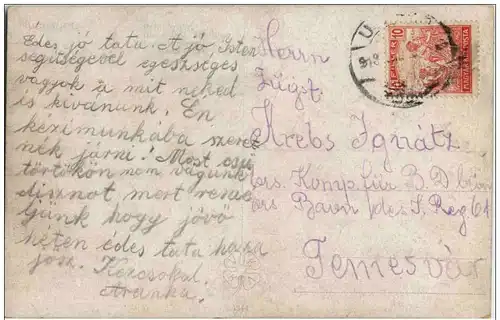 Édes jó tata. A jó, Isten
segítségével egeszséges
vagyok a mit neked
is kivanunk. En
kézimunkába szeret
nék járni! Most csü
törtökön nem vágunk
disznot, mert remé
ljünk hogy jövö
héten édes tata haza
josz. Kezcsokol.
Aranka.
Herrn
Zugst.
Krebs Ignátz
Komp. für B. D.
Baon Reg 61
Temesvár
10
MAGYAR POSTA